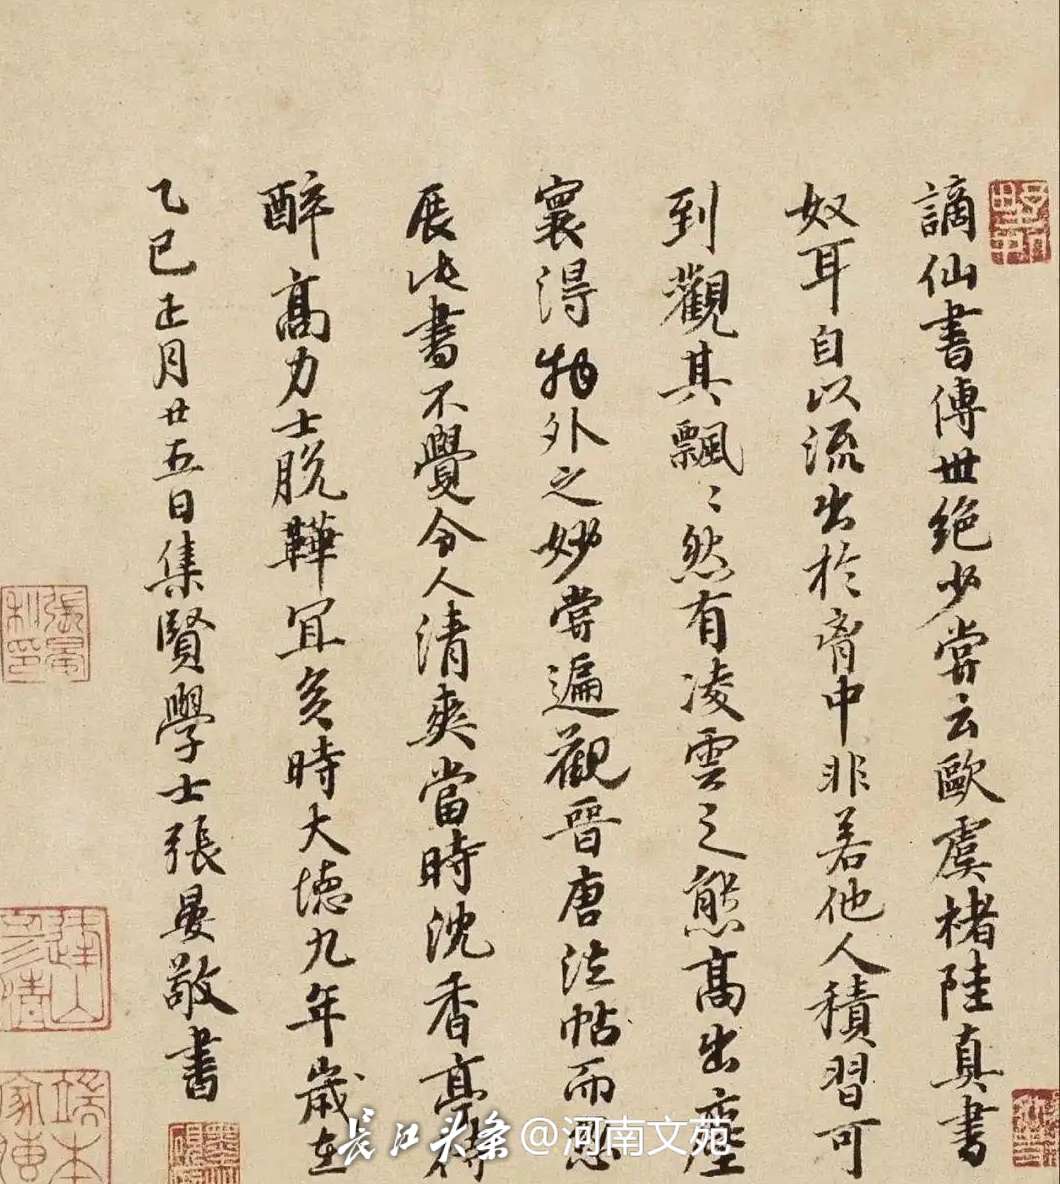 謫仙書傳世絕少嘗云歐虞褚陸真書
奴耳自以流出於胷中非若他人積習可
到觀其飄〻然有凌雲之態高出塵
寰得物外之妙嘗遍觀晉唐法帖而忽
展此書不覺令人清爽當時沈香亭待
醉高力士脫鞾宜矣時大德九年歲在
乙巳正月廿五日集賢學士張晏敬書
張晏
私印
瑞本
家傳
长江头条 @河南文苑